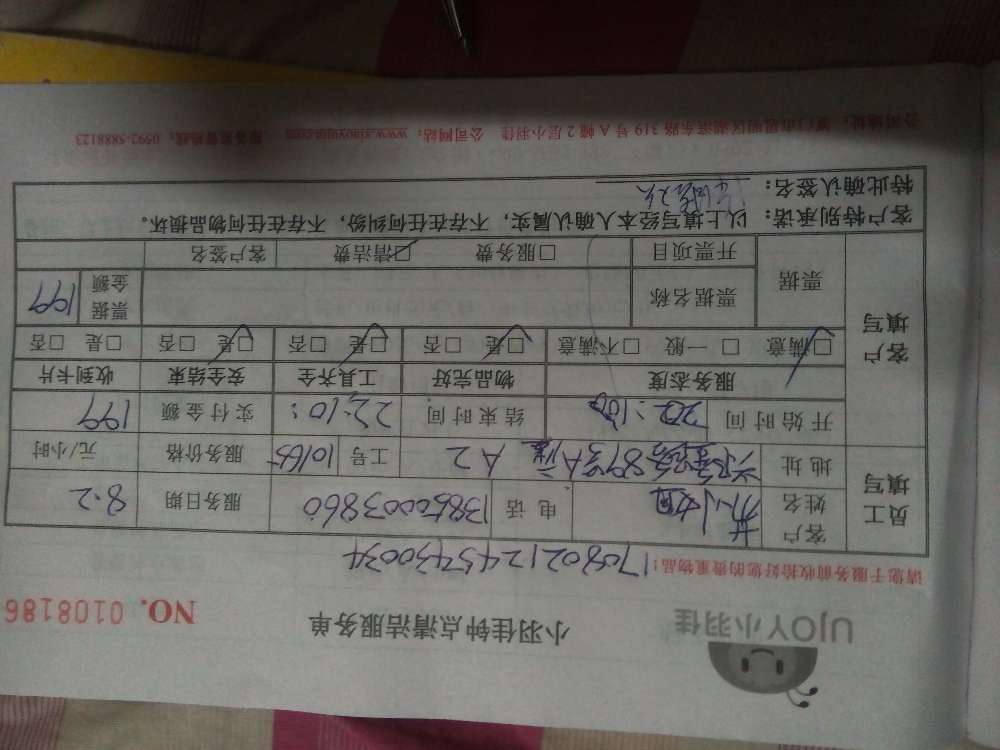 UJOY小羽佳
小羽佳钟点清洁服务单
NO. 0108186
请您于服务前收拾好您的贵重物品!
员工填写
客户姓名 小姐 电话 13860003860 服务日期 8.2
地址 897号A A2 工号 10165 服务价格 元/小时
开始时间 结束时间 22:10: 实付金额 199
客户填写
服务态度 物品完好 工具齐全 安全结束 收到卡片
☑满意 □一般 □不满意 ☑是 □否 ☑是 □否 ☑是 □否 □是 □否
票据 票据名称 票据金额 199
开票项目 □服务费 ☑清洁费 客户签名
客户特别承诺:以上填写经本人确认属实,不存在任何纠纷,不存在任何物品损坏。
特此确认签名:
公司地址:厦门市思明区湖滨东路319号A幢2层小羽佳 公司网站:www.xiaoyujia.com 服务监督热线:0592-5888123